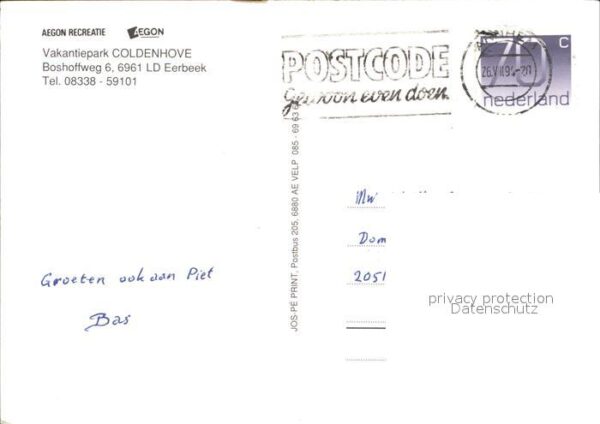 AEGON RECREATIE AEGON
Vakantiepark COLDENHOVE
Boshoffweg 6, 6961 LD Eerbeek
Tel. 08338 - 59101
POSTCODE
gewoon even doen.
70 c
nederland
JOS-PE PRINT, Postbus 205, 6880 AE VELP 085 - 69 63
Groeten ook aan Piet
Bas
Mw
Dom
2051
privacy protection
Datenschutz